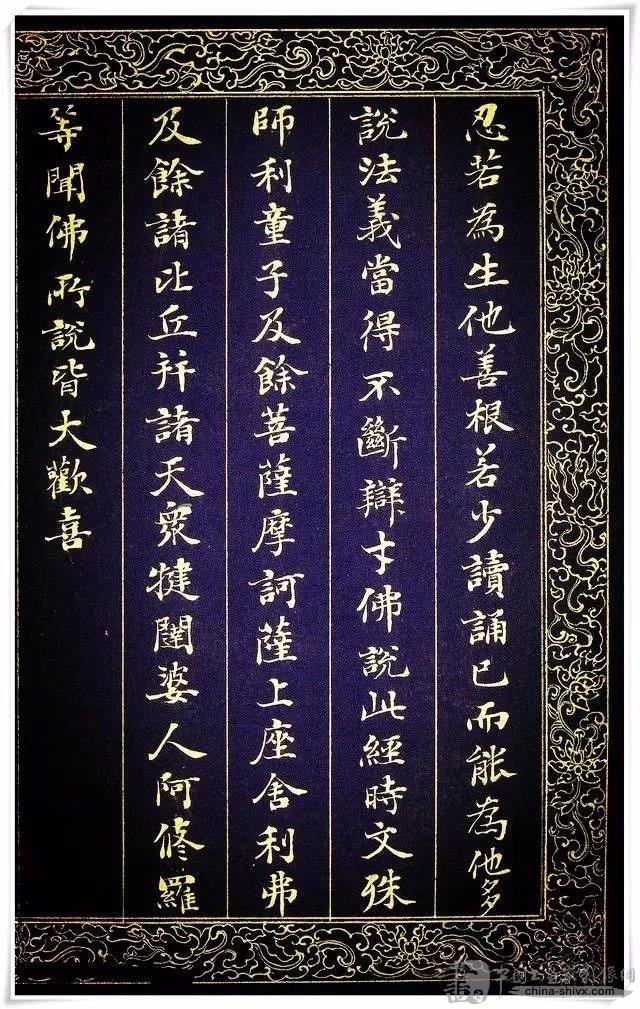 忍若為生他善根若少讀誦已而能為他多
說法義當得不斷辯才佛說此經時文殊
師利童子及餘菩薩摩訶薩上座舍利弗
及餘諸比丘并諸天眾犍闥婆人阿修羅
等聞佛所說皆大歡喜
china-shivx.com